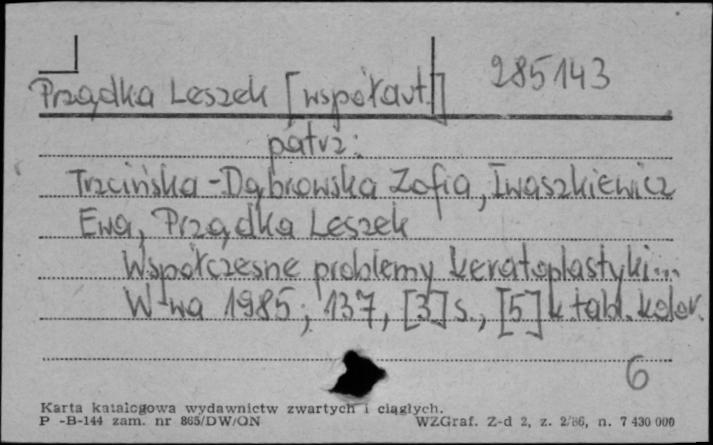 285143
Prządka Leszek [współaut.]
patrz:
Trzcińska-Dąbrowska Zofia, Iwaszkiewicz
Ewa, Prządka Leszek
Współczesne problemy keratoplastyki...
W-wa 1985; 137, [3] s., [5] k tabl. kolor.
6
Karta katalogowa wydawnictw zwartych i ciągłych.
P -B-144 zam. nr 865/DW/ON WZGraf. Z-d 2, z. 2/86, n. 7 430 000